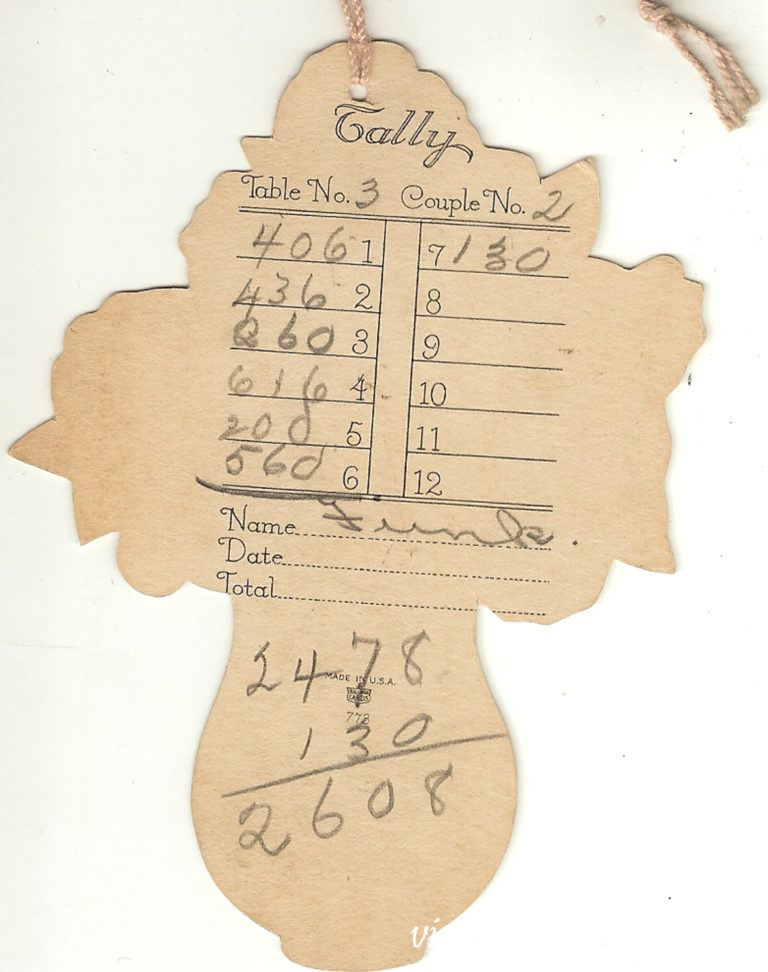 Tally
Table No. 3 Couple No. 2
406 1 7 130
436 2 8
260 3 9
616 4 10
200 5 11
560 6 12
Name Funk.
Date
Total
2478
MADE IN U.S.A.
773
130
2608
vi